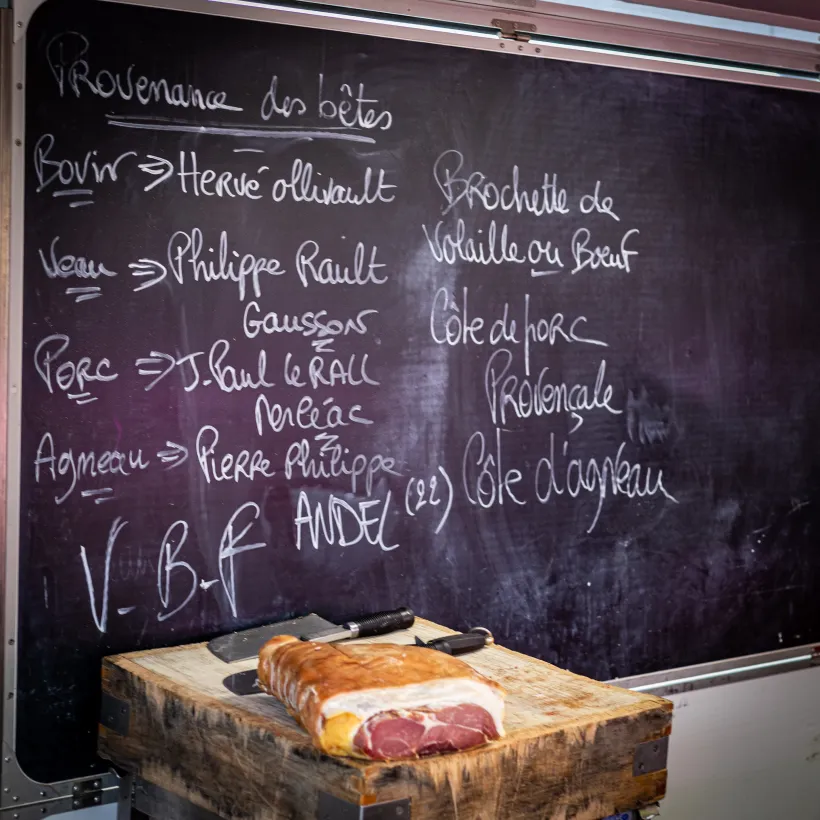 Provenance des bêtes
Bovin => Hervé Ollivault
Veau => Philippe Rault
Gausson
Porc => J.Paul Le Rall
Merléac
Agneau => Pierre Philippe
ANDEL (22)
V.B.F
Brochette de
Volaille ou Bœuf
Côte de porc
Provençale
Côte d'agneau